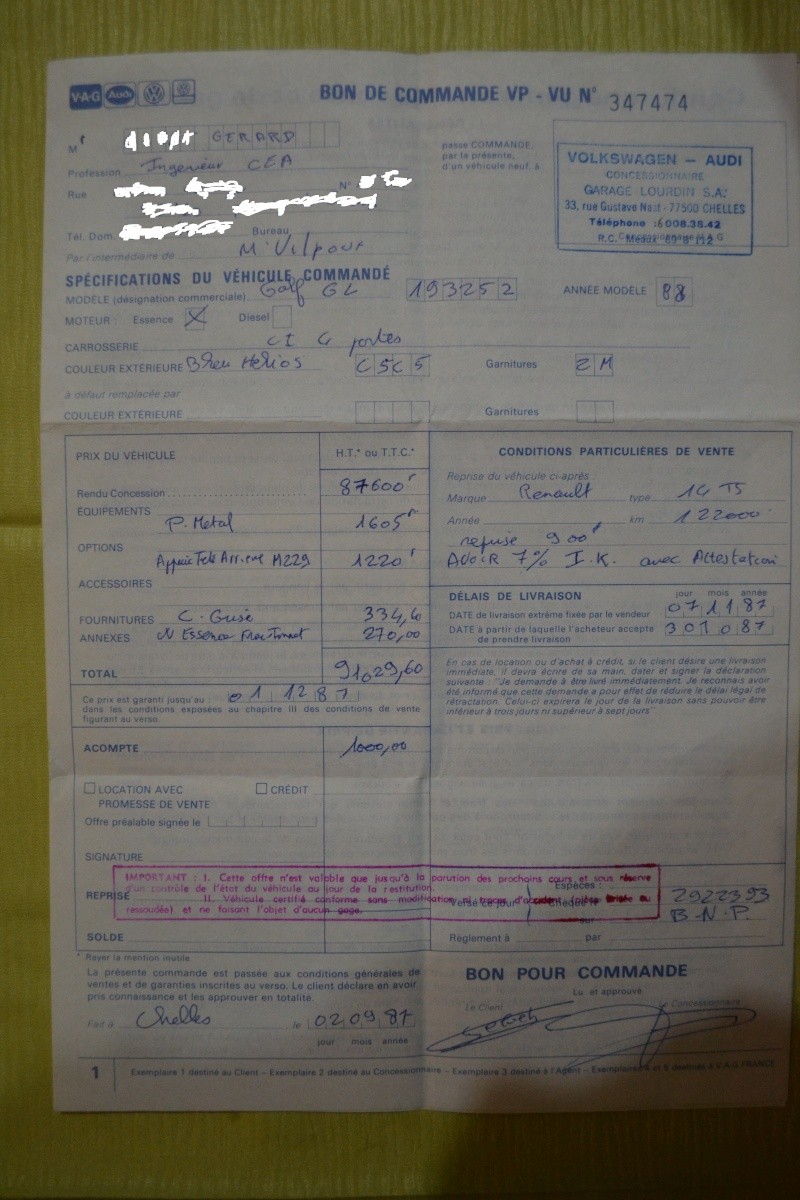 V·A·G Audi
BON DE COMMANDE VP - VU N° 347474
M r GERARD
passe COMMANDE,
par la présente,
d'un véhicule neuf, à
VOLKSWAGEN — AUDI
CONCESSIONNAIRE
GARAGE LOURDIN S.A.
33, rue Gustave Nast - 77500 CHELLES
Téléphone : 6 008.35.42
R.C. Meaux 69 B 112
Concessionnaire V.A.G
Profession Ingenieur CEA
Rue N°
Tél. Dom. Bureau
Par l'intermédiaire de M. Vilpoux
SPÉCIFICATIONS DU VÉHICULE COMMANDÉ
MODÈLE (désignation commerciale) Golf GL 193252 ANNÉE MODÈLE 88
MOTEUR : Essence X Diesel
CARROSSERIE CI 4 portes
COULEUR EXTÉRIEURE Bleu Helios C5C5 Garnitures 2M
à défaut remplacée par
COULEUR EXTÉRIEURE Garnitures
PRIX DU VÉHICULE H.T.* ou T.T.C.*
Rendu Concession 87600 F
ÉQUIPEMENTS
P. Metal 1605 F
OPTIONS
Appuie Tete Arriere M229 1220 F
ACCESSOIRES
FOURNITURES C. Grise 334,60
ANNEXES 270,00
TOTAL 91029,60
Ce prix est garanti jusqu'au : 01 12 87
dans les conditions exposées au chapitre III des conditions de vente
figurant au verso.
ACOMPTE 1000,00
LOCATION AVEC CRÉDIT
PROMESSE DE VENTE
Offre préalable signée le
SIGNATURE
REPRISE
SOLDE
CONDITIONS PARTICULIÈRES DE VENTE
Reprise du véhicule ci-après
Marque Renault type 14 TS
Année km 122000
reprise 900 F
AVOIR 7% I.K. avec Attestation
DÉLAIS DE LIVRAISON jour mois année
DATE de livraison extrême fixée par le vendeur 07 11 87
DATE à partir de laquelle l'acheteur accepte 30 10 87
de prendre livraison
En cas de location ou d'achat à crédit, si le client désire une livraison
immédiate, il devra écrire de sa main, dater et signer la déclaration
suivante : "Je demande à être livré immédiatement. Je reconnais avoir
été informé que cette demande a pour effet de réduire le délai légal de
rétractation. Celui-ci expirera le jour de la livraison sans pouvoir être
inférieur à trois jours ni supérieur à sept jours"
IMPORTANT : I. Cette offre n'est valable que jusqu'à la parution des prochains cours et sous réserve
d'un contrôle de l'état du véhicule au jour de la restitution.
II. Véhicule certifié conforme sans modification, ni traces d'accident (pièce brisée ou
ressoudée) et ne faisant l'objet d'aucun gage.
Espèces :
Versé ce jour Chèques n° 2922393
sur B.N.P.
Règlement à par
* Rayer la mention inutile
La présente commande est passée aux conditions générales de
ventes et de garanties inscrites au verso. Le client déclare en avoir
pris connaissance et les approuver en totalité.
Fait à Chelles le 02 09 87
jour mois année
BON POUR COMMANDE
Lu et approuvé
Le Client Le Concessionnaire
1 Exemplaire 1 destiné au Client – Exemplaire 2 destiné au Concessionnaire – Exemplaire 3 destiné à l'Agent – Exemplaires 4 et 5 destinés à V.A.G FRANCE